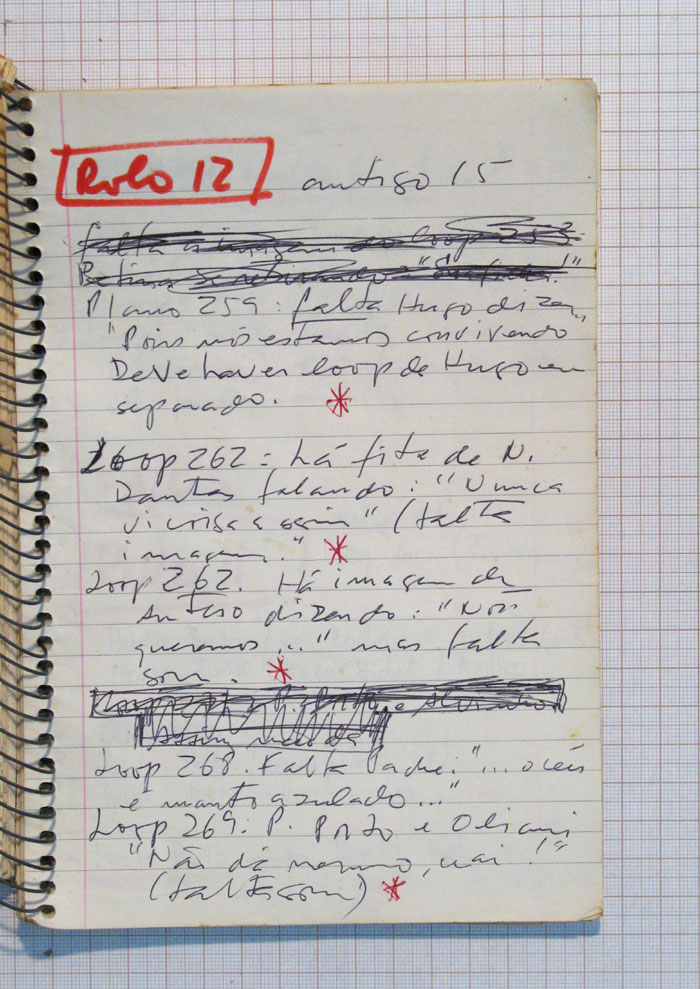 Rolo 12 antigo 15
falta a imagem do loop 253.
Plano 259: falta Hugo dizer,
"Pois nós estamos convivendo
Deve haver loop de Hugo em
separado. *
Loop 262: há fita de N.
Dantas falando: "Nunca
vi crise assim" (falta
imagem." *
Loop 262. Há imagem de
dizendo: "Nós
queremos..." mas falta
som. *
Loop 268. Falta Padre: "... o céu
e manto azulado..."
Loop 269: P. Porto e
"Não dá mesmo, uai!"
(falta som) *